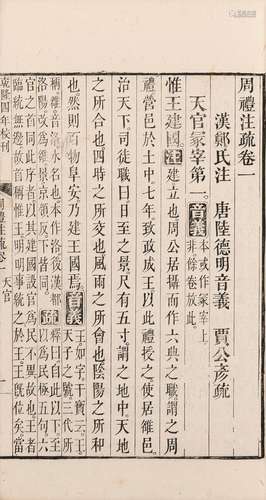 周禮注疏卷一
漢鄭氏注　唐陸德明音義　賈公彥疏
天官冢宰第一音義本或作冢宰上非餘卷放此
惟王建國注建立也周公居攝而作六典之職謂之周
禮營邑於土中七年致政成王以此禮授之使居雒邑
治天下司徒職曰日至之景尺有五寸謂之地中天地
之所合也四時之所交也風雨之所會也陰陽之所和
也然則百物阜安乃建王國焉音義
乾隆四年校刊
周禮注疏卷一　天官